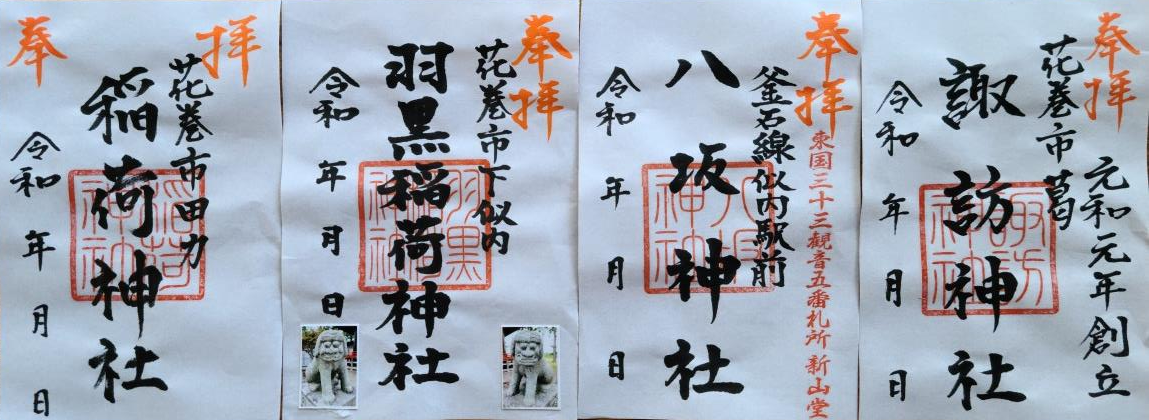 奉 拝
花巻市田力
稲荷神社
令和 年 月 日
奉拝
花巻市下似内
羽黒稲荷神社
令和 年 月 日
奉拝
東国三十三観音五番札所 新山堂
釜石線似内駅前
八坂神社
令和 年 月 日
奉拝
元和元年創立
花巻市葛
諏訪神社
令和 年 月 日